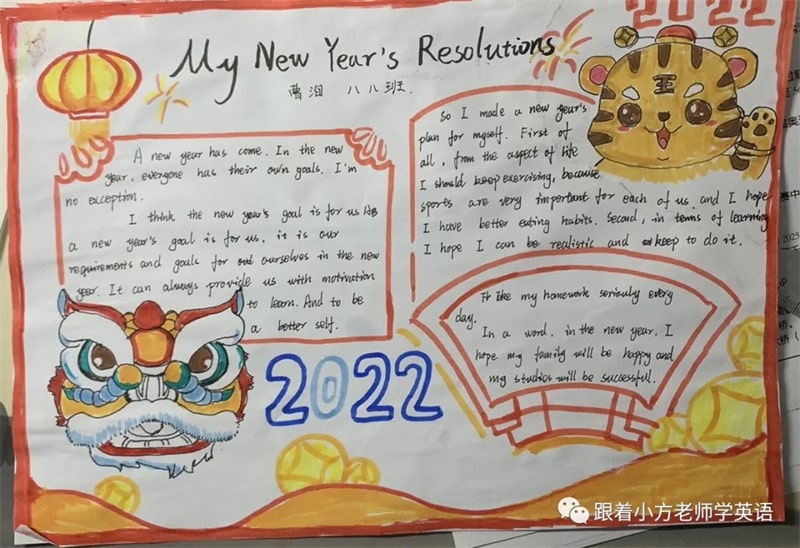 2022
My New Year's Resolutions
曹润 八八班.
A new year has come. In the new
year, everyone has their own goals. I'm
no exception.
I think the new year's goal is for us
a new year's goal is for us, it is our
requirements and goals for ourselves in the new
year. It can always provide us with motivation
to learn. And to be
a better self.
So I made a new year's
plan for myself. First of
all, from the aspect of life
I should keep exercising, because
sports are very important for each of us. and I hope
I have better eating habits. Second, in terms of learning
I hope I can be realistic and keep to do it.
王
It like my homework seriously every
day.
In a word, in the new year, I
hope my family will be happy and
my studies will be successful.
2022
跟着小方老师学英语